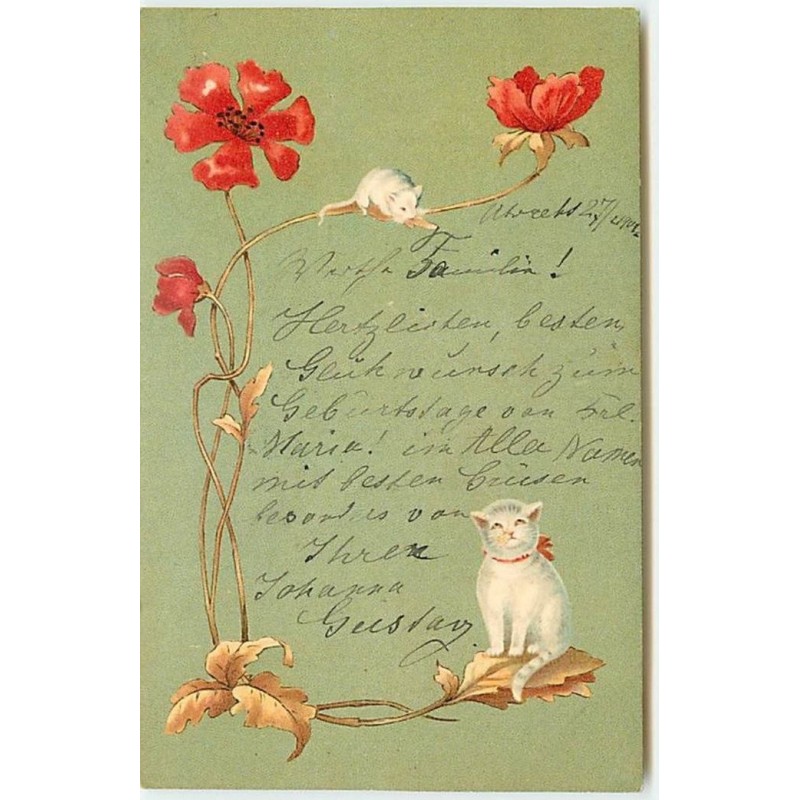 27/
Werthe Familie!
Hertzlichsten, besten
Glükwünsch zum
Geburtstage von Frl.
Maria! im Alla Namen
mit besten Grüsen
besonders von
Ihren
Johanna
Gustav